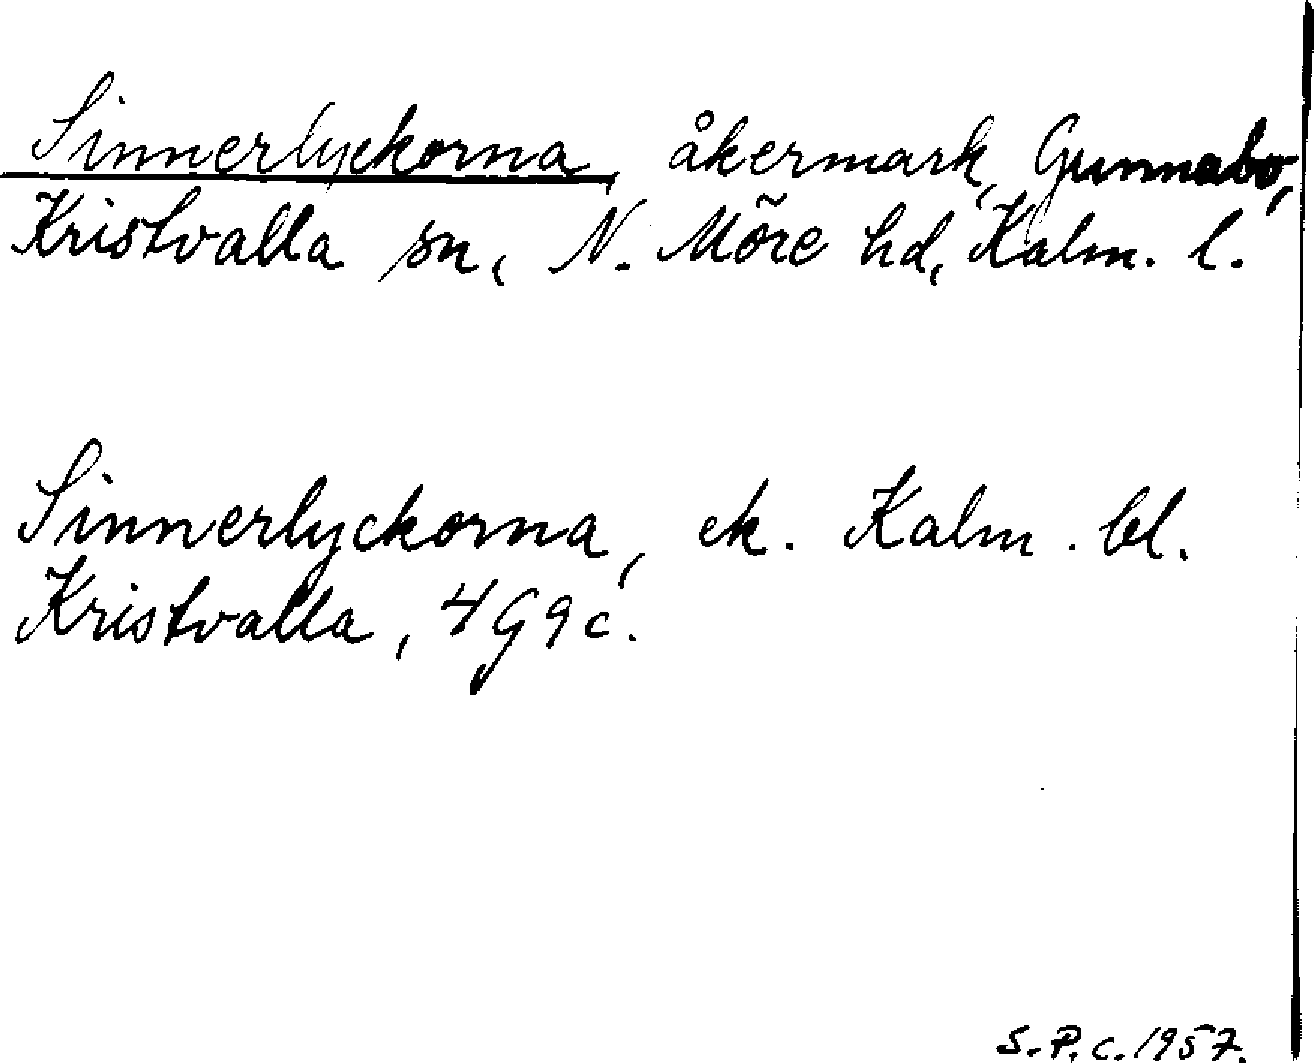 Sinnerlyckorna, åkermark, Gunnabo,
Kristvalla sn, N. Möre hd, Kalm. l.
Sinnerlyckorna, ek. Kalm. bl.
Kristvalla, 4G9c.
S.P.C. 1957.